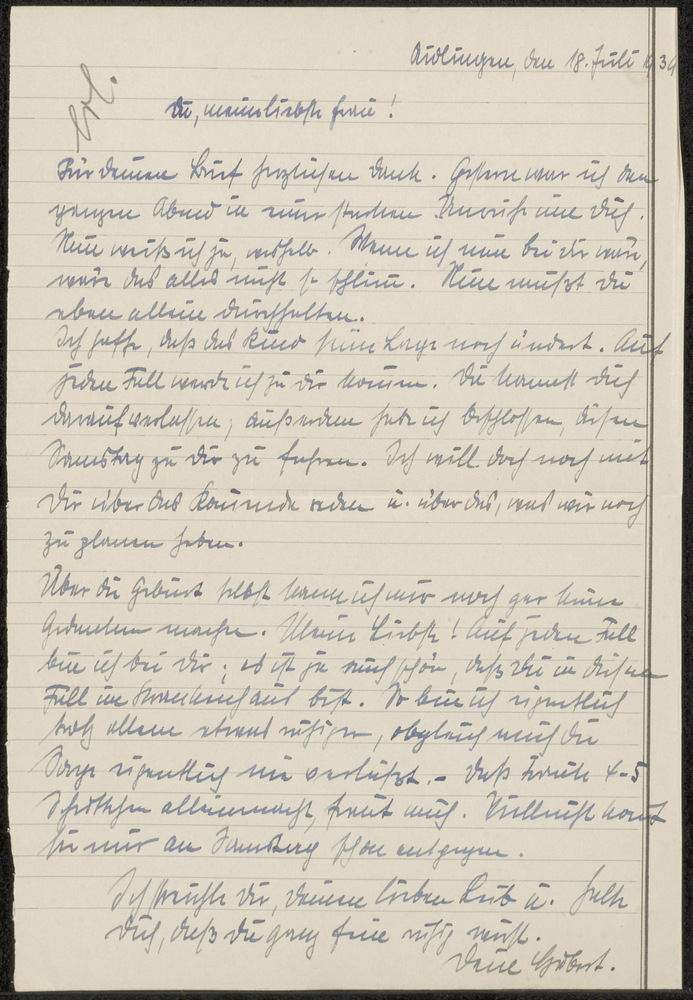 Aidlingen, den 18. Juli 1939
Erl.
Du, meine liebste Frau!
Für deinen Brief herzlichen Dank. Gestern war ich den
ganzen Abend in einer starken Unruhe um dich.
Nun weiß ich ja, weshalb. Wenn ich nun bei dir wäre,
wäre das alles nicht so schlimm. Nun mußt du
eben allein durchhalten.
Ich hoffe, daß das Kind seine Lage noch ändert. Auf
jeden Fall werde ich zu dir kommen. Du kannst dich
darauf verlassen, außerdem habe ich beschlossen, diesen
Samstag zu dir zu fahren. Ich will doch noch mit
dir über das Kommende reden u. über das, was wir noch
zu planen haben.
Über die Geburt selbst kann ich mir noch gar keine
Gedanken machen. Meine Liebste! Auf jeden Fall
bin ich bei dir; es ist ja auch schön, daß du in diesem
Fall im Krankenhaus bist. So bin ich eigentlich
trotz allem etwas ruhiger, obgleich mich die
Sorge eigentlich nie verläßt. – Daß Traute 4-5
Schrittchen allein macht, freut mich. Vielleicht kommt
sie mir am Samstag schon entgegen.
Ich streichle dir, deinen lieben Leib u. halte
dich, daß du ganz fein ruhig wirst.
Dein Hubert.